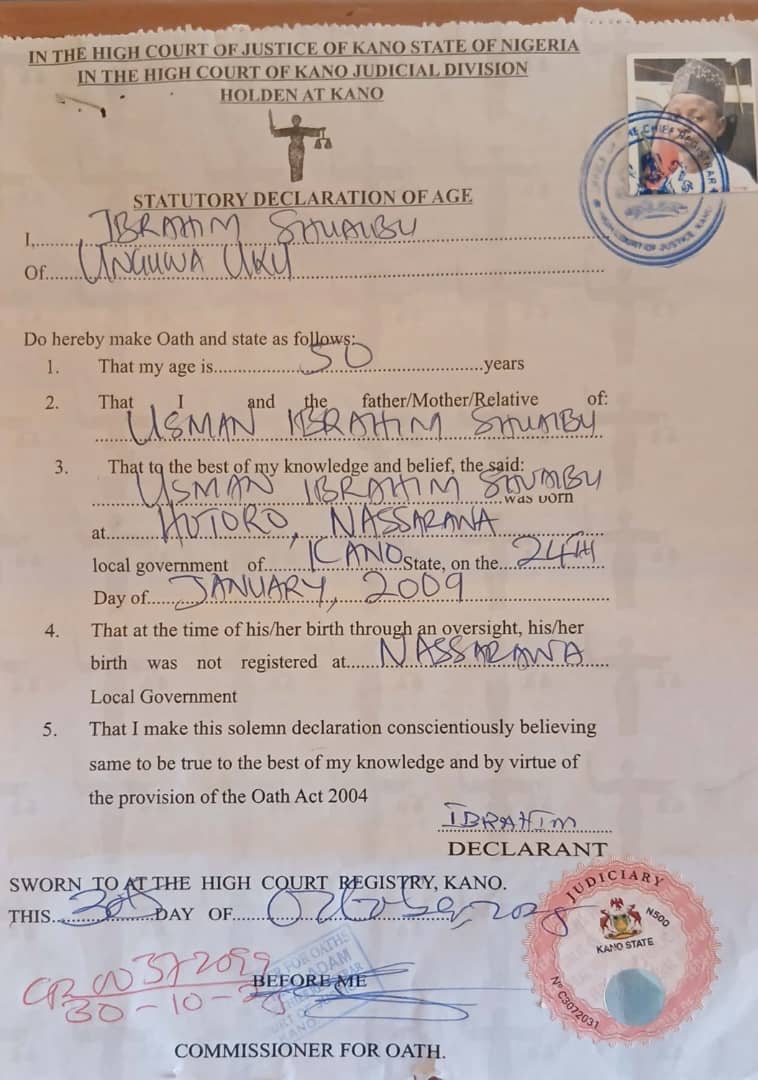 IN THE HIGH COURT OF JUSTICE OF KANO STATE OF NIGERIA
IN THE HIGH COURT OF KANO JUDICIAL DIVISION
HOLDEN AT KANO
STATUTORY DECLARATION OF AGE
I,......IBRAHIM SHUAIBU
Of......UNGUWA UKU
Do hereby make Oath and state as follows:
1. That my age is......50......years
2. That I and the father/Mother/Relative of:
USMAN IBRAHIM SHUAIBU
3. That to the best of my knowledge and belief, the said:
USMAN IBRAHIM SHUAIBU was born
at......HOTORO, NASSARAWA
local government of......KANO State, on the...24TH
Day of......JANUARY, 2009
4. That at the time of his/her birth through an oversight, his/her
birth was not registered at......NASSARAWA
Local Government
5. That I make this solemn declaration conscientiously believing
same to be true to the best of my knowledge and by virtue of
the provision of the Oath Act 2004
IBRAHIM
DECLARANT
SWORN TO AT THE HIGH COURT REGISTRY, KANO.
THIS......30th DAY OF......October,
30-10-
BEFORE ME
COMMISSIONER FOR OATH.
THE CHIEF REGISTRAR
HIGH COURT OF JUSTICE KANO
FOR OATHS
ADAM
JUDICIARY
N500
KANO STATE
Nº C3072031